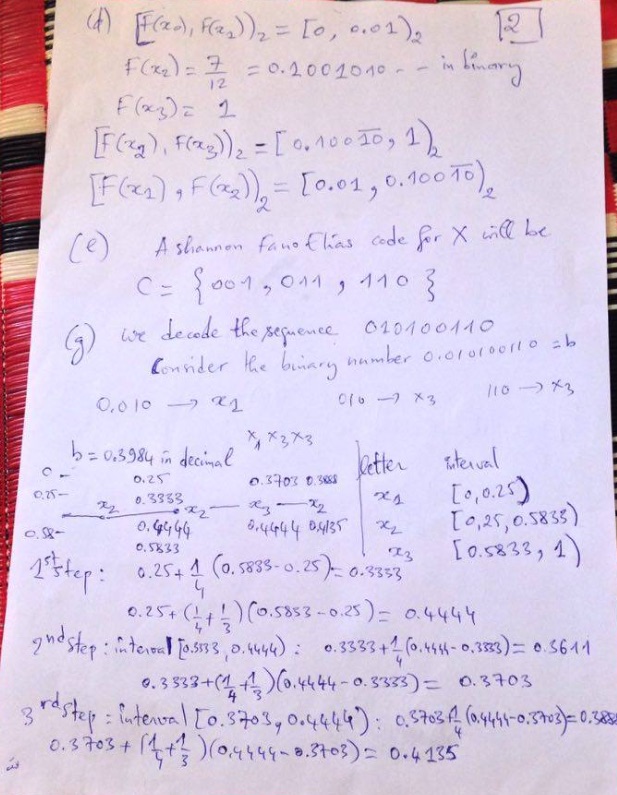 (d) [F(x₀), F(x₁))₂ = [0, 0.01)₂ [2]
F(x₂) = 7/12 = 0.1001010 - - in binary
F(x₃) = 1
[F(x₂), F(x₃))₂ = [0.100̅1̅0̅, 1)₂
[F(x₁), F(x₂))₂ = [0.01, 0.1001̅0̅)₂
(e) A shannon Fano Elias code for X will be
C = {001, 011, 110}
(g) we decode the sequence 010100110
Consider the binary number 0.010100110 = b
0.010 → x₁ 010 → x₃ 110 → x₃
x₁ x₃ x₃
b = 0.3984 in decimal letter interval
0 - 0.25 0.3703 0.3888 x₁ [0, 0.25)
0.25- x₂ 0.3333 x₂ — x₃ — x₂ x₂ [0,25, 0.5833)
0.58- 0.4444 0.4444 0.4135 x₃ [0.5833, 1)
0.5833
1st step: 0.25 + 1/4 (0.5833 - 0.25) = 0.3333
0.25 + (1/4 + 1/3)(0.5853 - 0.25) = 0.4444
2nd step: interval [0.3333, 0.4444): 0.3333 + 1/4 (0.4444 - 0.3333) = 0.3611
0.3333 + (1/4 + 1/3)(0.4444 - 0.3333) = 0.3703
3rd step: interval [0.3703, 0.4444): 0.3703 + 1/4 (0.4444 - 0.3703) = 0.388
0.3703 + (1/4 + 1/3)(0.4444 - 0.3703) = 0.4135